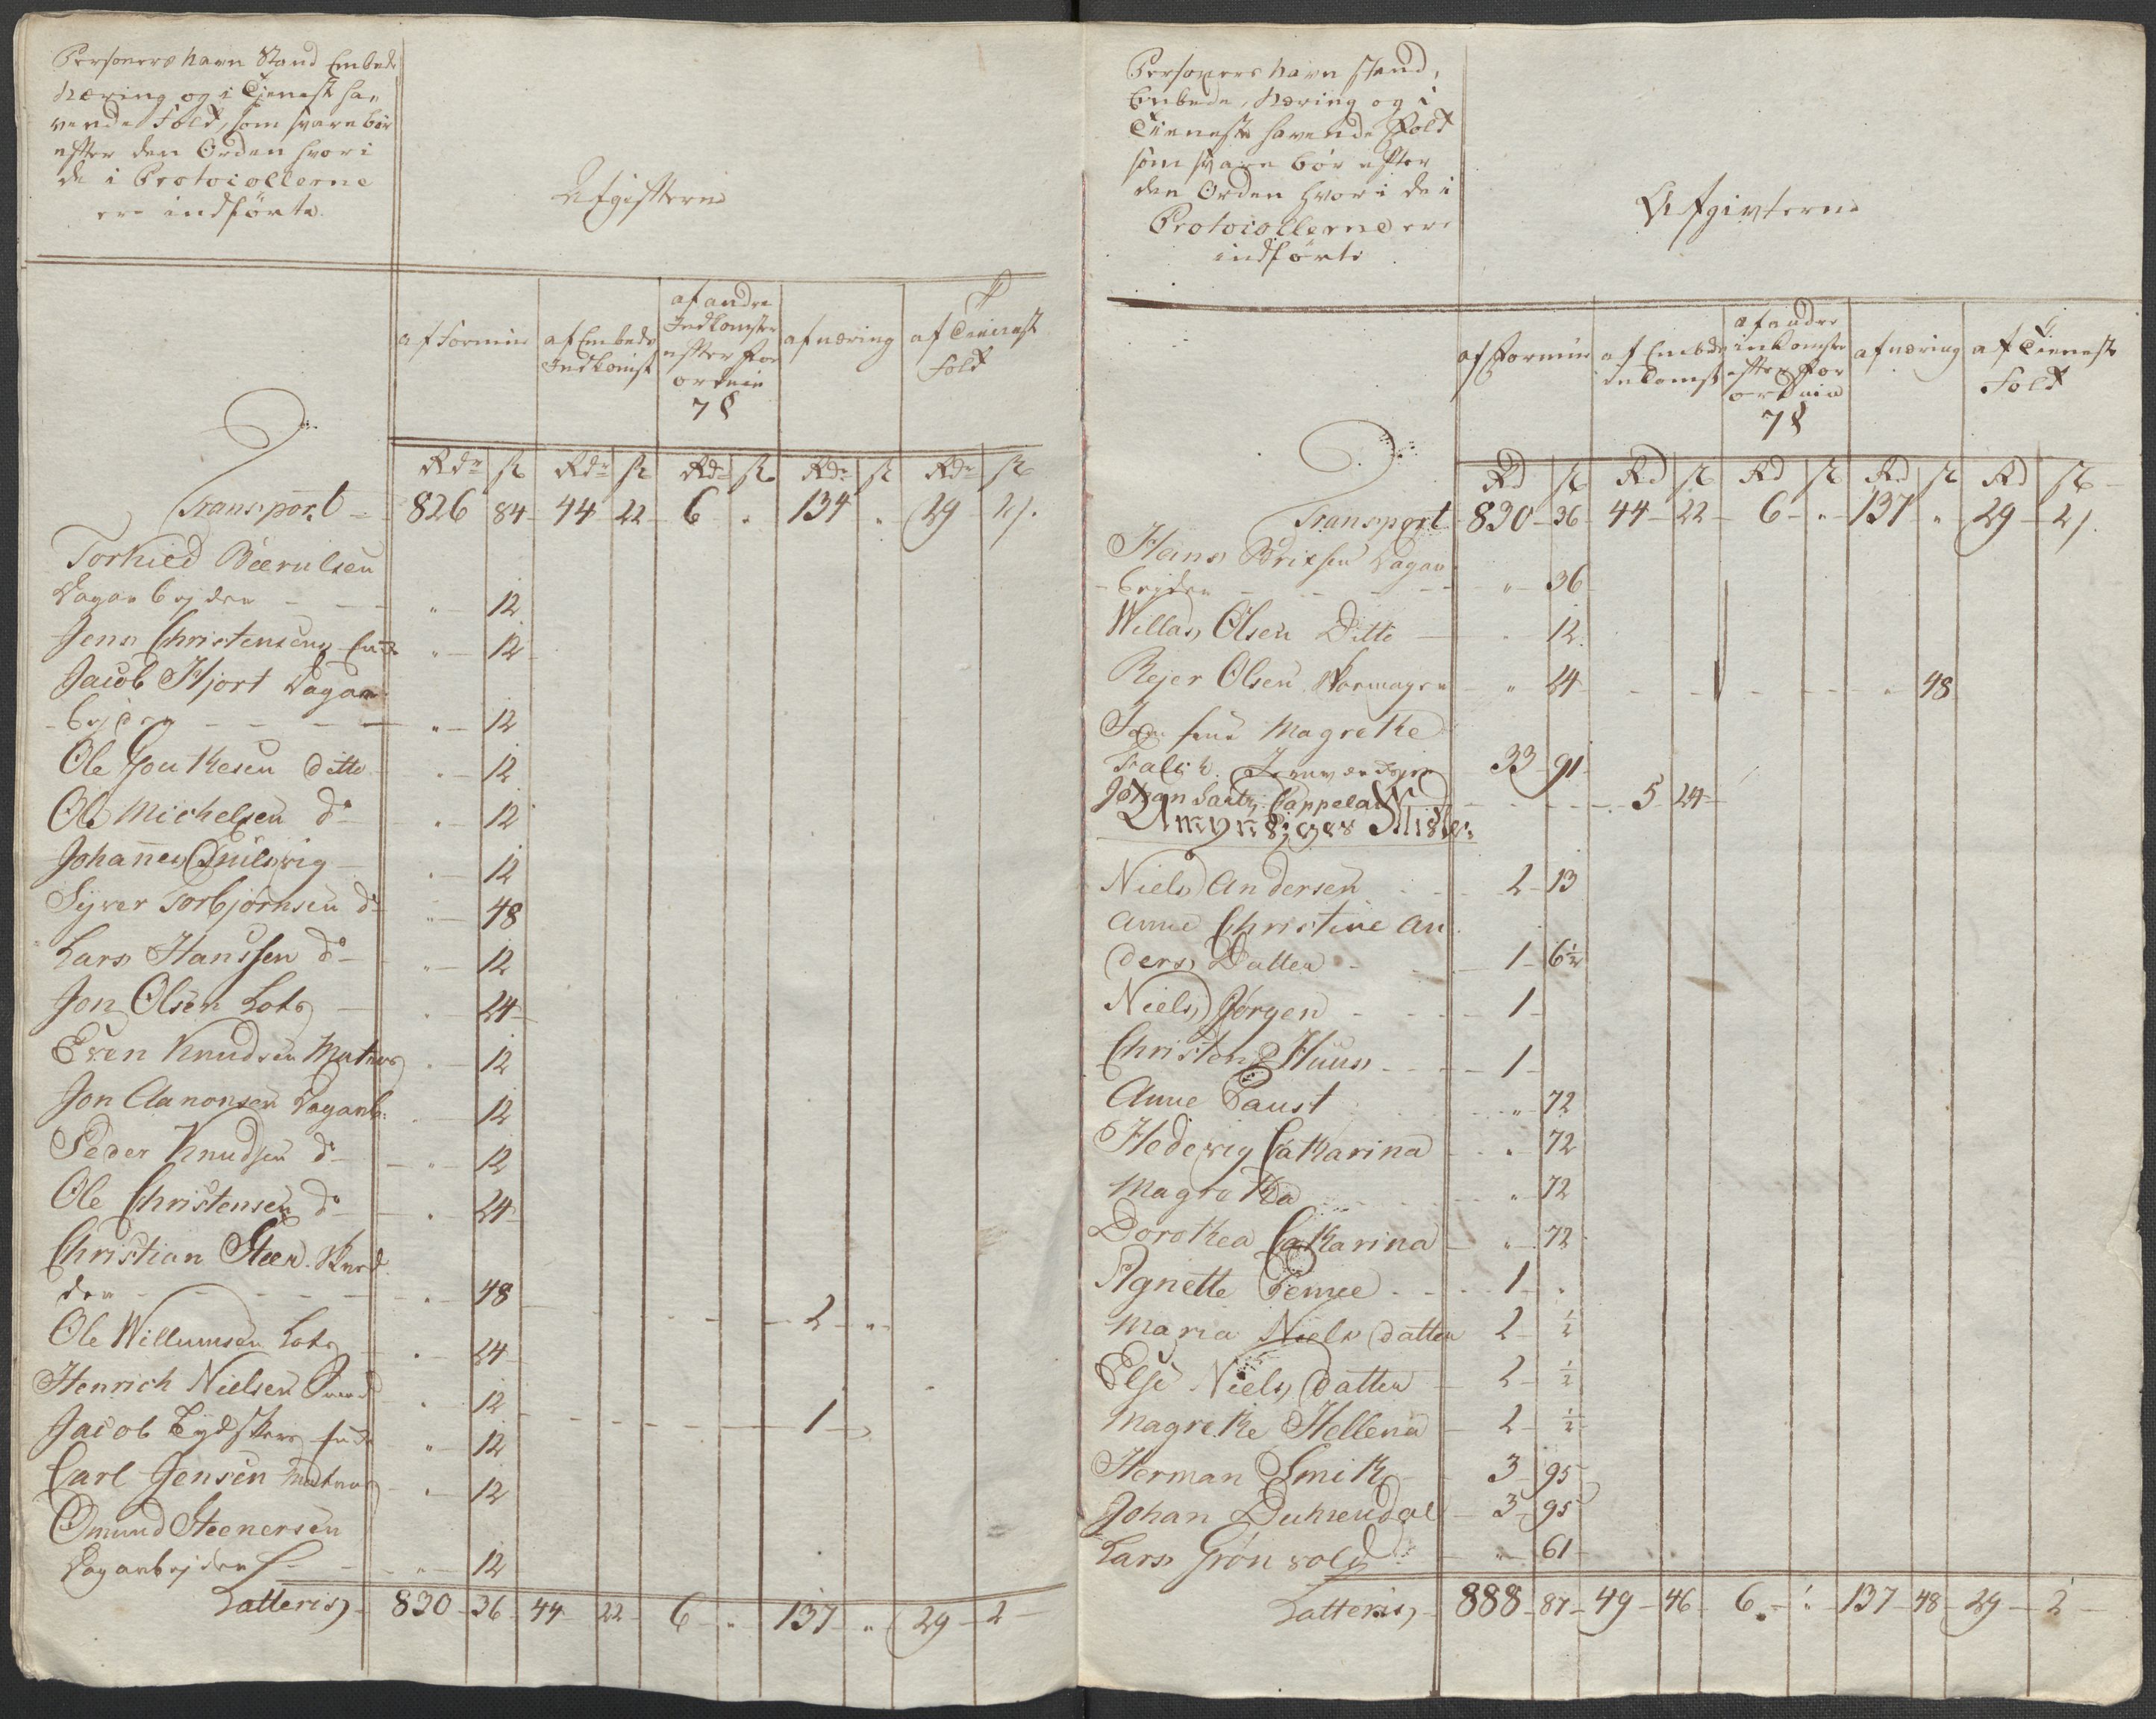 Personers Navn Stand Embede
Næring og i Tieneste ha-
vende Folk, som svare bør
efter den Orden hvori
de i Protocollerne
ere indførte.
Afgifterne
af Formue af Embeds Indkomst af andre Indkomster efter For ordnin 7 § af næring af Tieneste Folk
Rdr s Rdr s Rdr s Rdr s Rdr s
Transport 826 84 44 22 6 " 134 " 29 2
Torkild Beerulsen
Dagarbejder " 12
Jens Christensens Enke " 12
Jacob Hjort Dagar
bejder " 12
Ole Gouthesen ditto " 12
Ole Michelsen do " 12
Johannes Quilsvig " 12
Syver Torbjørnsen do " 48
Lars Hanssen do " 12
Jon Olsen Lots " 24
Even Knudsen Matros " 12
Jon Aanonsen Dagarb: " 12
Peder Knudsen do " 12
Ole Christensen do " 24
Christian Steen Skræd
der " 48 2 "
Ole Willumsen Lots " 24
Henrich Nielsen Smed " 12 1 "
Jacob Lydskers Enke " 12
Carl Jensen Matros " 12
Omund Steenersen
Dagarbejder " 12
Latteris 830 36 44 22 6 " 137 " 29 2
Personers Navn Stand,
Embede, Næring og i
Tieneste havende Folk
som svare bør efter
den Orden hvori de i
Protocollerne ere
indførte
Afgivterne
af Formue af Embeds Indkomst af andre inkomster efter For ordnin 7 § af næring af Tieneste Folk
Rd s Rd s Rd s Rd s Rd s
Transport 830 36 44 22 6 " 137 " 29 2
Hans Brixsen Dagar
bejder " 36
Willas Olsen Ditto " 12
Rejer Olsen Skomager " 24 " 48
Jomfrue Magrethe
Falch 33 91
Johan Santz. Cappelan 5 24
Umyndiges Midler
Niels Andersen 2 13
Anne Christine An
ders Datter 1 6½
Niels Jørgen 1
Christen Huus 1
Anne Faust " 72
Hedevig Catharina " 72
Magretha " 72
Dorothea Catharina " 72
Agnette Temee 1 "
Maria Niels Datter 2 ½
Else Niels Datter 2 ½
Magrethe Hellena 2 ½
Herman Smith 3 95
Johan Duhsendal 3 95
Lars Grønvold " 61
Latteris 888 87 49 46 6 " 137 48 29 2